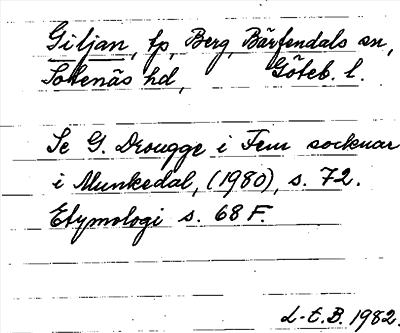 Giljan, fp, Berg, Bärfendals sn,
Sotenäs hd, Göteb. l.
Se G. Drougge i Fem socknar
i Munkedal, (1980), s. 72.
Etymologi s. 68 F.
L-E.B. 1982.